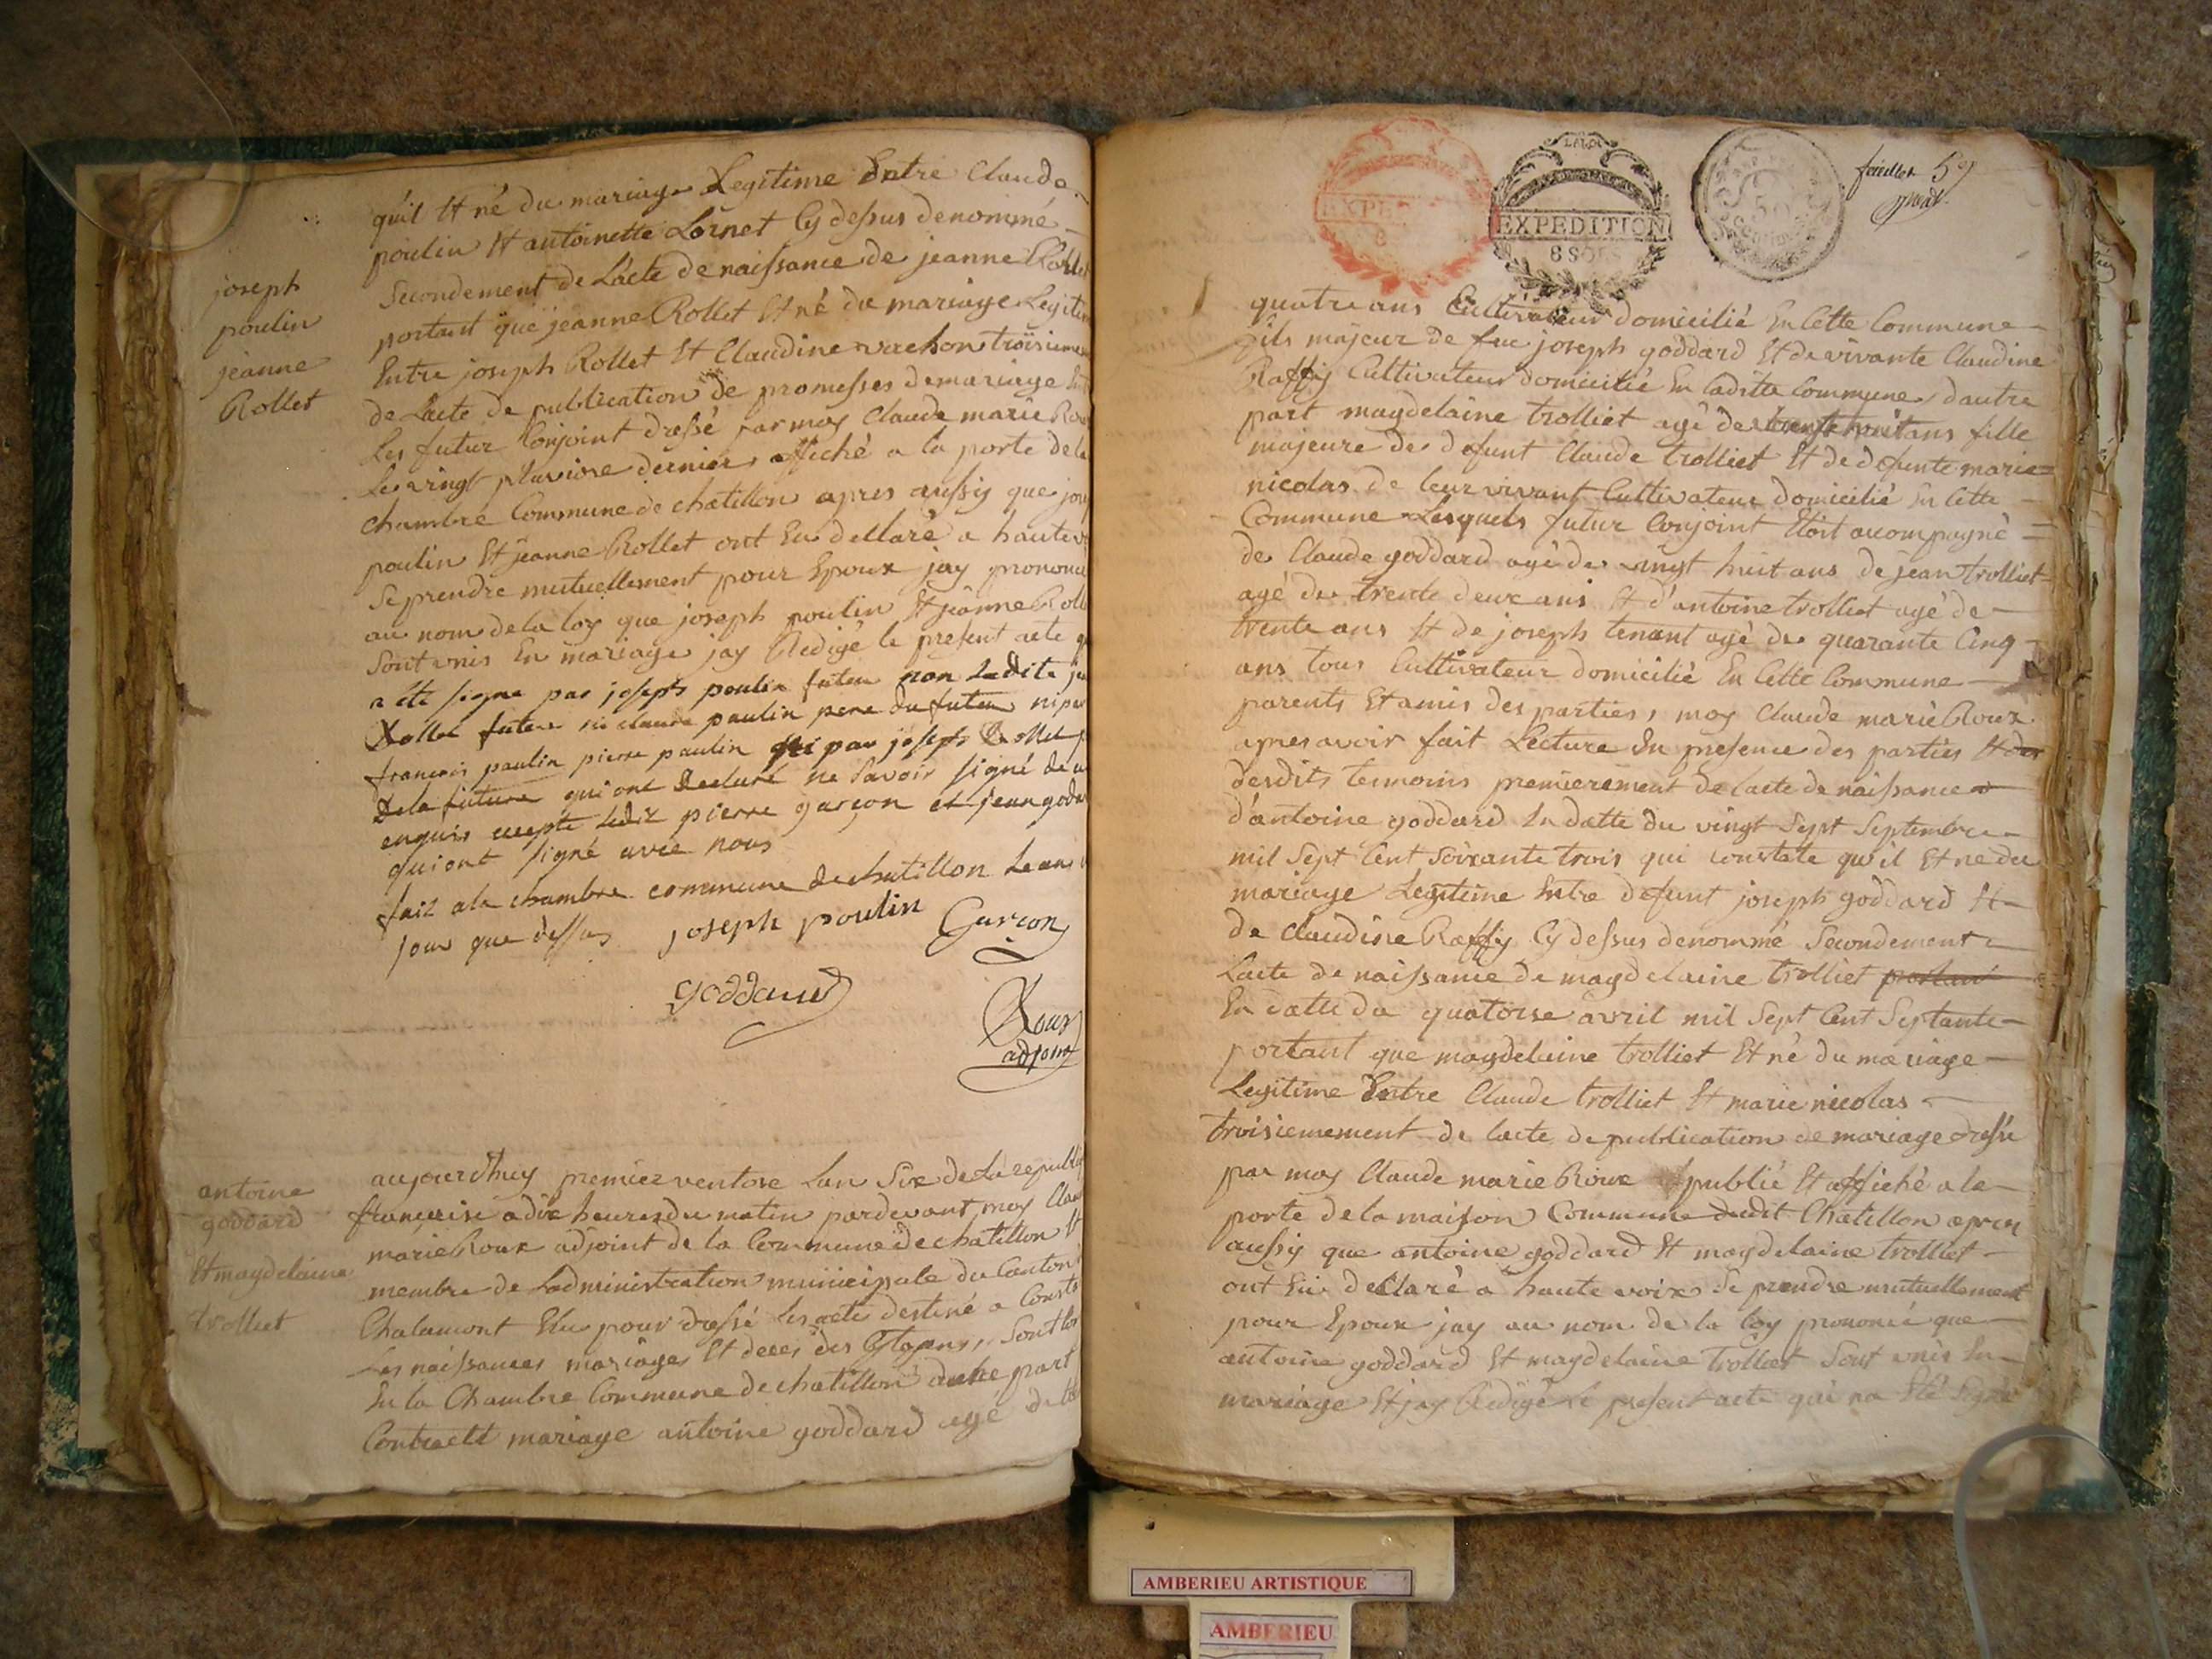 joseph
poulin
jeanne
Rollet
qu'il Et né du mariage Legitime Entre Claude
poulin Et antoinette Loinet Cy dessus denommé
Secondement de L'acte de naissance de jeanne Rollet
portant que jeanne Rollet Et né du mariage Legitim
Entre joseph Rollet Et Claudine vachon troisiemem
de Lacte de publication de promesses de mariage
Les futur Conjoint dressé par moy Claude marie Rou
Le vingt pluviose dernier affiché a la porte de la
chambre Commune de chatillon apres aussy que jos
poulin Et jeanne Rollet ont Eu dellaré a haute v
Se prendre mutuellement pour Epoux jay prononc
au nom de la loy que joseph poulin Et jeanne Roll
Sont unis En mariage jay Redigé le present acte q
a été signé par joseph poulin futeu non Ladite je
Rollet future ni claude paulin pere du futeu ni par
francois paulin pierre paulin ni par joseph Rollet p
de la future qui ont declaré ne Savoir signé de ce
enquis excepté Ledit pierre garçon et jean godd
qui ont signé avec nous
fait a la chambre commune de chatillon Le an
jour que dessus joseph poulin Garçon
goddard
Roux
adjoint
antoine
goddard
Et magdelaine
trolliet
aujourdhuy premier ventose Lan Six de La republiq
francaise a dix heures du matin pardevant moy Clau
marie Roux adjoint de la Commune de chatillon Et
membre de Ladministration municipale du Canton
Chalamont Elu pour dressé les acte destiné a Consta
Les naissances mariages Et deces des Citoyens, Sont
En la Chambre Commune de chatillon dune part
Contracté mariage antoine goddard agé de
EXPEDITION
8 SOLS
LA LOI
EXPEDITION
8 SOLS
50
Centimes
feuillet 59
quatre ans Cultivateur domicilié En Cette Commune
fils majeur de feu joseph goddard Et de vivante Claudine
Raffy Cultivateur domicilié En ladite Commune, dautre
part magdelaine trolliet agé de vingt huit ans fille
majeure de defunt Claude trolliet Et de defunte marie
nicolas de leur vivant Cultivateur domicilié En Cette
Commune Lesquels futur Conjoint Etoit acompagné
de Claude goddard agé de vingt huit ans de jean trolliet
agé de trente deux ans Et d'antoine trolliet agé de
trente ans Et de joseph tenant agé de quarante Cinq
ans tous Cultivateur domicilié En Cette Commune
parents Et amis des parties, moy Claude marie Roux
apres avoir fait Lecture En presence des parties Et des
desdits temoins premierement de lacte de naissance
d'antoine goddard En datte du vingt Sept Septembre
mil Sept Cent Soixante trois qui constate qu'il Et ne du
mariage Legitime Entre defunt joseph goddard Et
de Claudine Raffy Cy dessus denommé Secondement
Lacte de naissance de magdelaine trolliet portant
En datte du quatorse avril mil Sept Cent Septante
portant que magdelaine trolliet Et né du mariage
Legitime Entre Claude trolliet Et marie nicolas
troisiemement de lacte de publication de mariage dressé
par moy Claude marie Roux publié Et affiché a la
porte de la maison Commune dudit Chatillon apres
aussy que antoine goddard Et magdelaine trolliet
ont Eu declaré a haute voix Se prendre mutuellement
pour Epoux jay au nom de la loy prononcé que
antoine goddard Et magdelaine trolliet Sont unis En
mariage Et jay Redigé le present acte qui na Eté Signé
AMBERIEU ARTISTIQUE
AMBERIEU